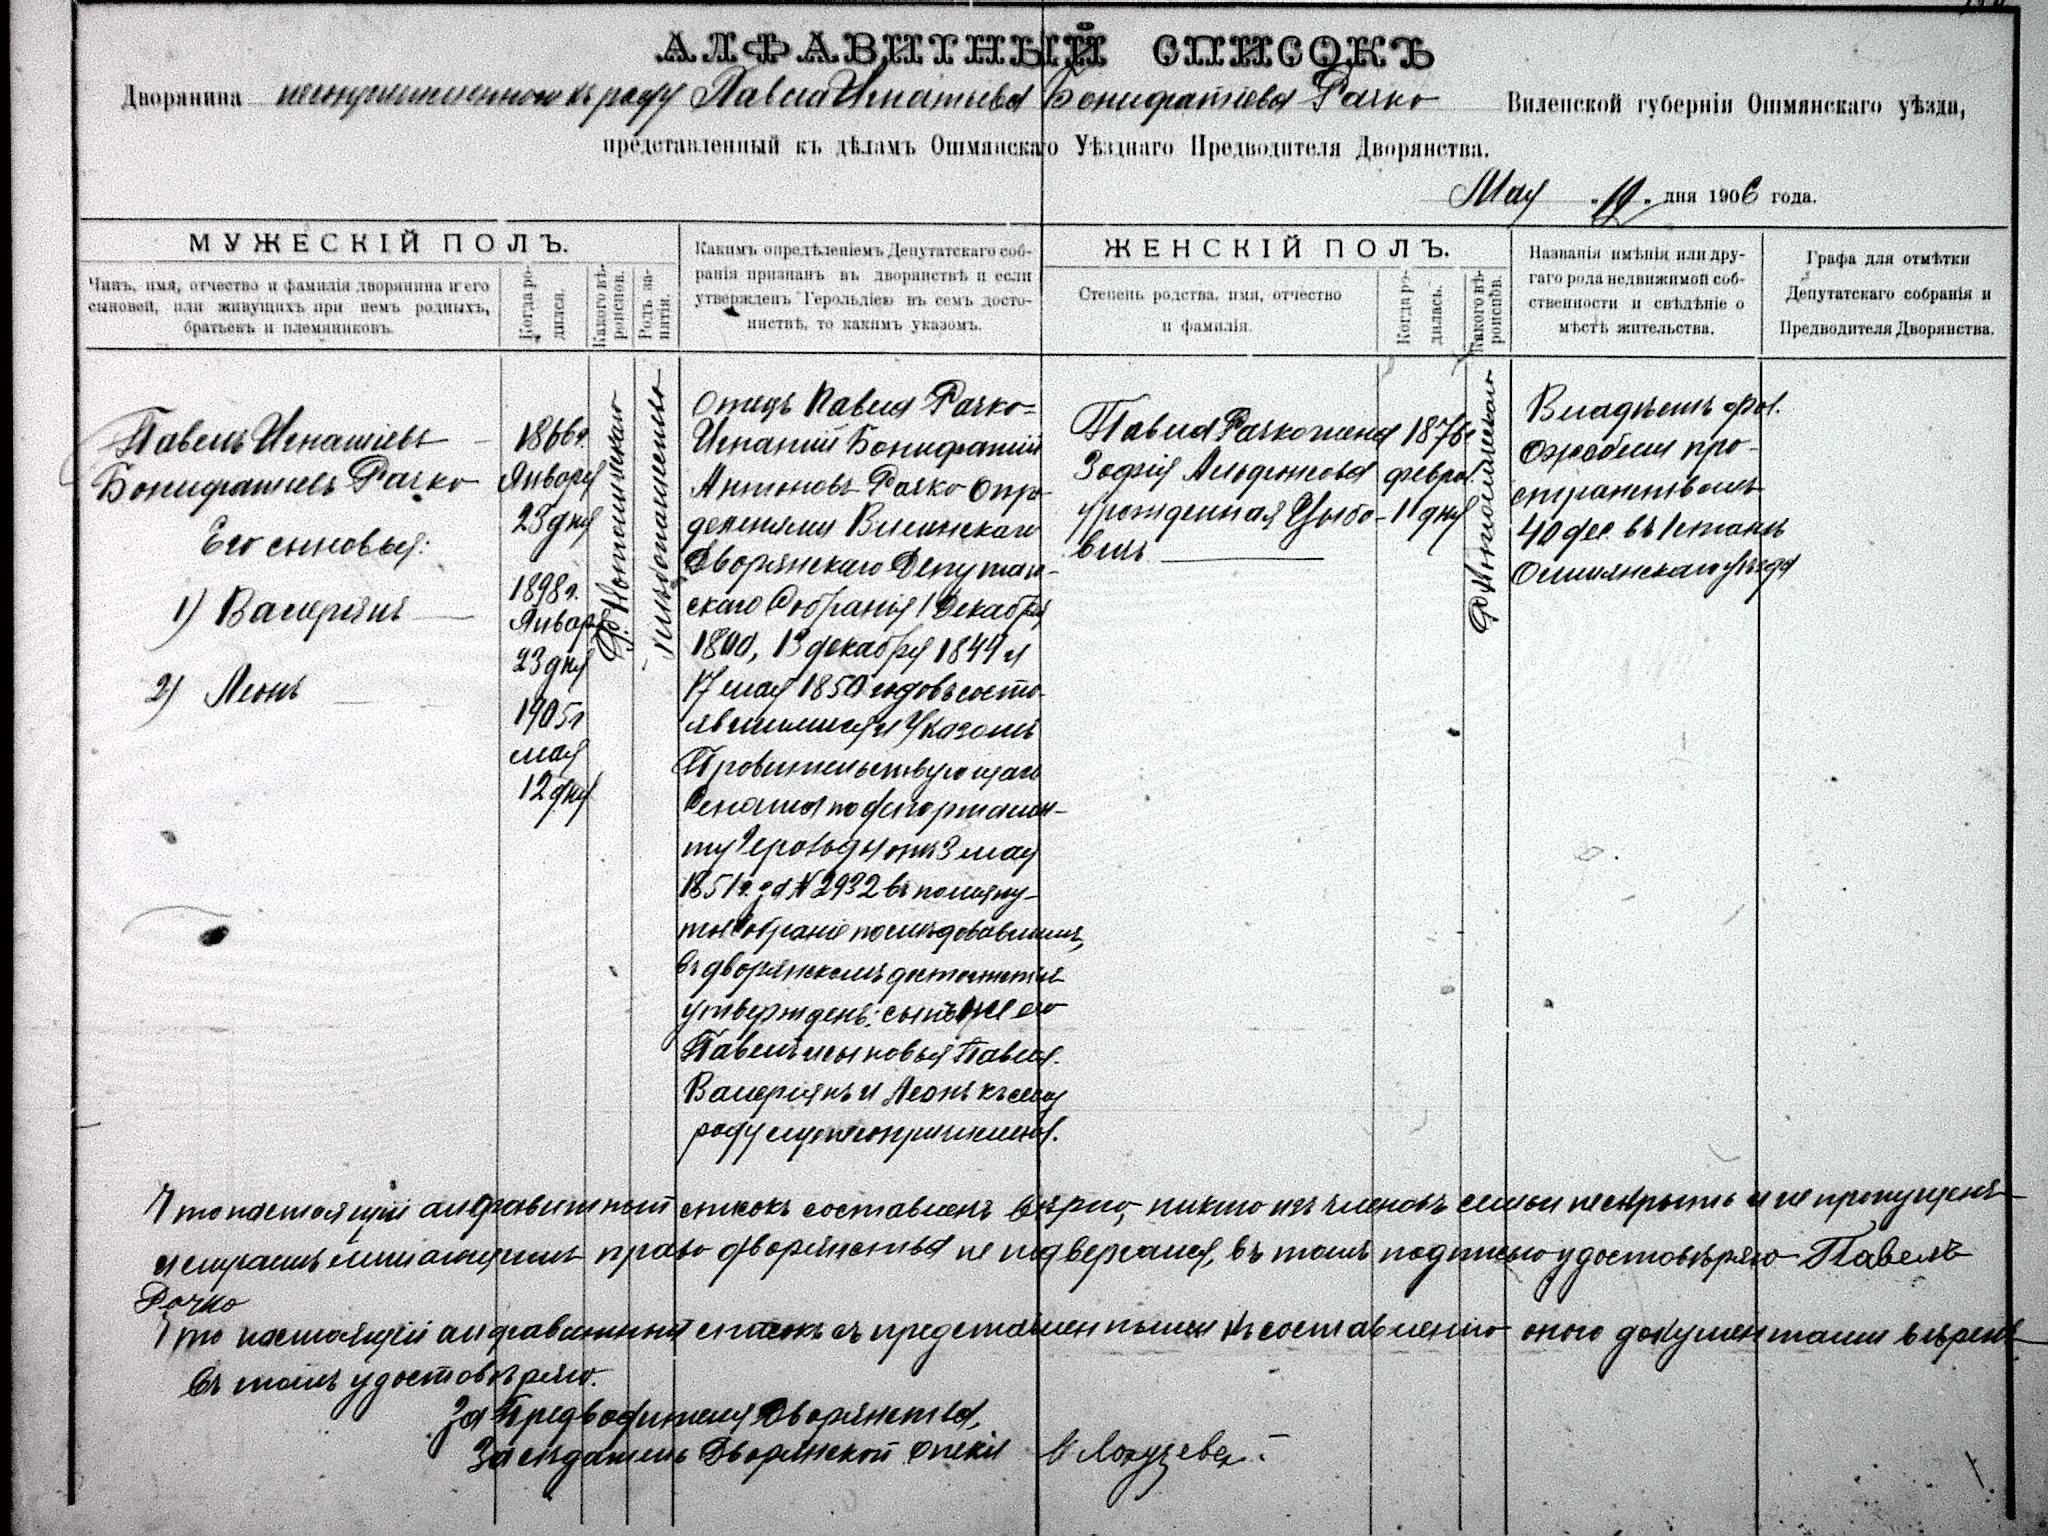 АЛФАВИТНЫЙ СПИСОКЪ
Дворянина непричисленнаго къ роду Павла Игнатьева Бонифатіева Рачко Виленской губерніи Ошмянскаго уѣзда,
представленный къ дѣламъ Ошмянскаго Уѣзднаго Предводителя Дворянства.
Мая дня 1906 года.
МУЖЕСКІЙ ПОЛЪ.
Чинъ, имя, отчество и фамилія дворянина и его
сыновей, или живущихъ при немъ родныхъ,
братьевъ и племянниковъ.
Когда ро-
дился.
Какого вѣ-
роисповѣд.
Родъ за-
нятія.
Какимъ опредѣленіемъ Депутатскаго соб-
ранія признанъ въ дворянствѣ и если
утвержденъ Герольдіею въ семъ досто-
инствѣ, то какимъ указомъ.
ЖЕНСКІЙ ПОЛЪ.
Степень родства, имя, отчество
и фамилія.
Когда ро-
дилась.
Какого вѣ-
роисповѣд.
Названія имѣнія или дру-
гаго рода недвижимой соб-
ственности и свѣдѣніе о
мѣстѣ жительства.
Графа для отмѣтки
Депутатскаго собранія и
Предводителя Дворянства.
Павелъ Игнатіевъ
Бонифатіевъ Рачко
Его сыновья:
1) Валеріянъ
2) Леонъ
1866 г.
Января
23 дня
1898 г.
Января
23 дня
1905 г
мая
12 дня
Р. Католическаго
хлѣбопашество
Отецъ Павла Рачко-
Игнатій Бонифатій
Антоновъ Рачко опре-
деленіями Виленскаго
Дворянскаго Депутат-
скаго Собранія 1 Декабря
13 декабря 1844 и
17 мая 1850 годовъ состо-
явшимися и Указомъ
Правительствующаго
Сената по Департамен-
ту Герольдіи отъ 3 мая
1851 г. за № 2932 въ помяну-
тое Собраніе послѣдовавшимъ,
въ дворянскомъ достоинствѣ
утвержденъ; сынъ же его
Павелъ и сыновья Павла.
Валеріянъ и Леонъ къ сему
роду еще не причислены.
Павла Рачко жена
Зофія Альфонсова
урожденная Цыбо-
1876 г.
феврал.
11 дня
Р. Католическаго
Владѣетъ фол.
про-
странствомъ
40 дес. въ 1 станѣ
Ошмянскаго уѣзда
Что настоящій алфавитный списокъ составленъ вѣрно, никто изъ членовъ семьи не скрытъ и не пропущенъ
и штрафамъ лишающимъ права дворянства не подвергался, въ томъ подписью удостовѣряю Павелъ
Рачко
Что настоящій алфавитный списокъ съ представленными къ составленію онаго документами вѣренъ
въ томъ удостовѣряю.
За Предводителя Дворянства,
Засѣдатель Дворянской Опеки